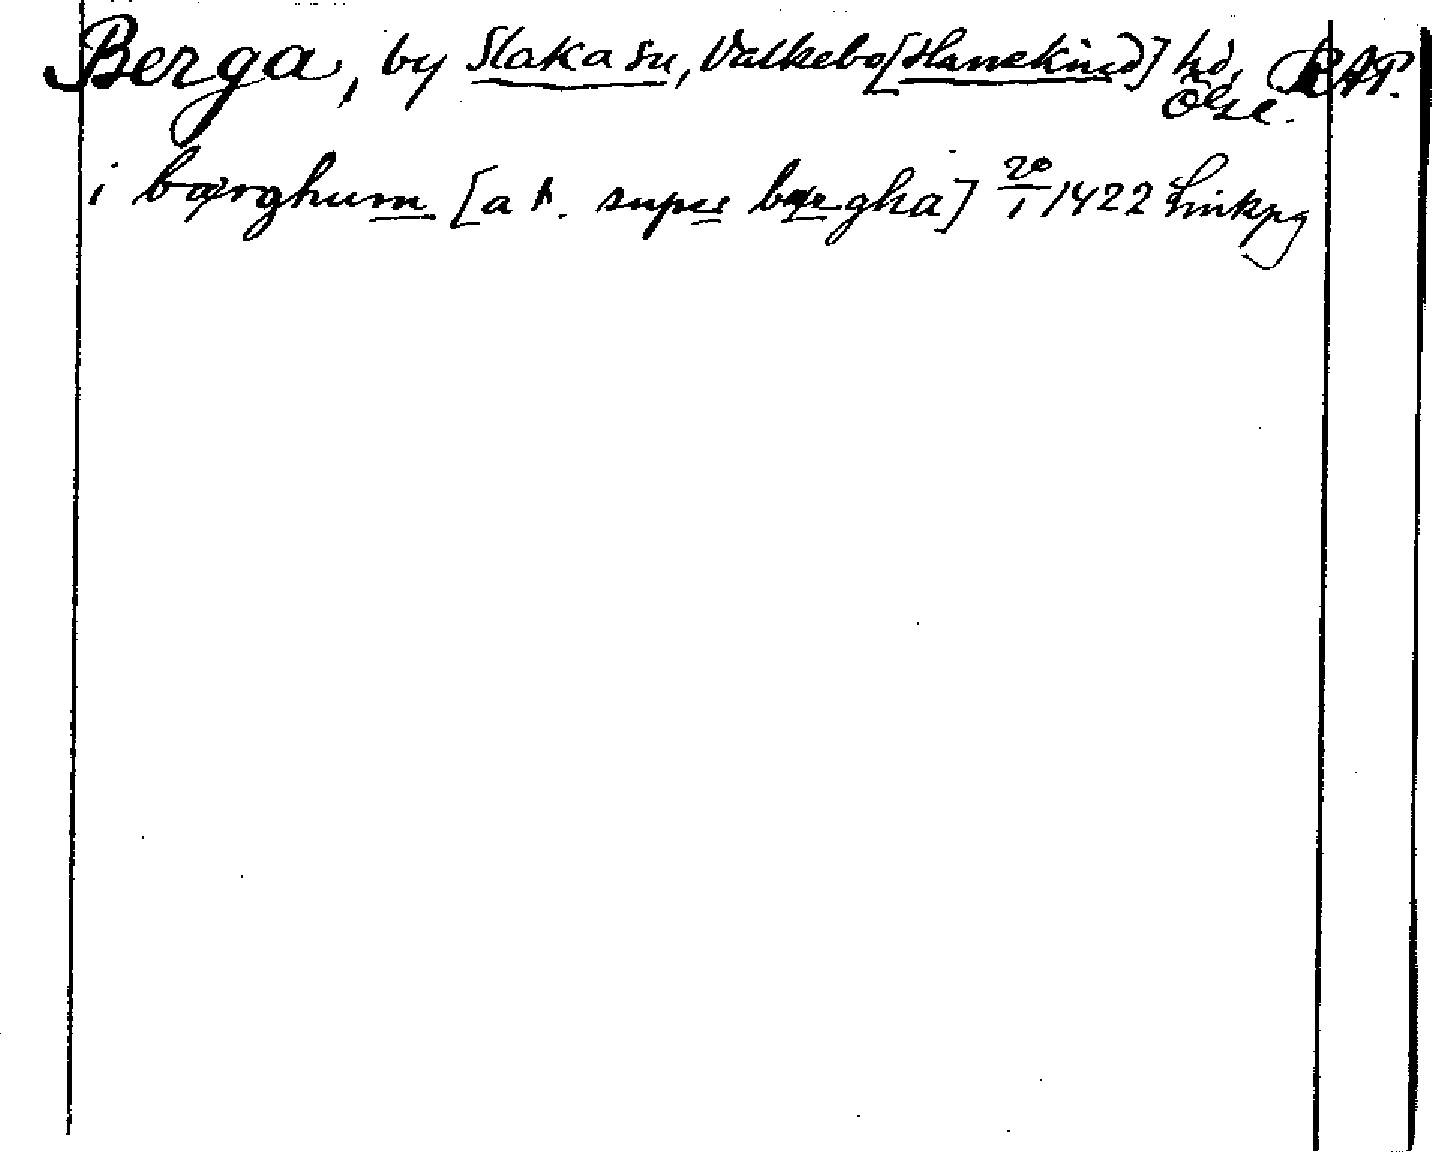 Berga, by Slaka sn, Valkebo [Hanekind] hd, RAP.
Ögl.
i bærghum [at. super bærgha] 20/1 1422 Linkpg